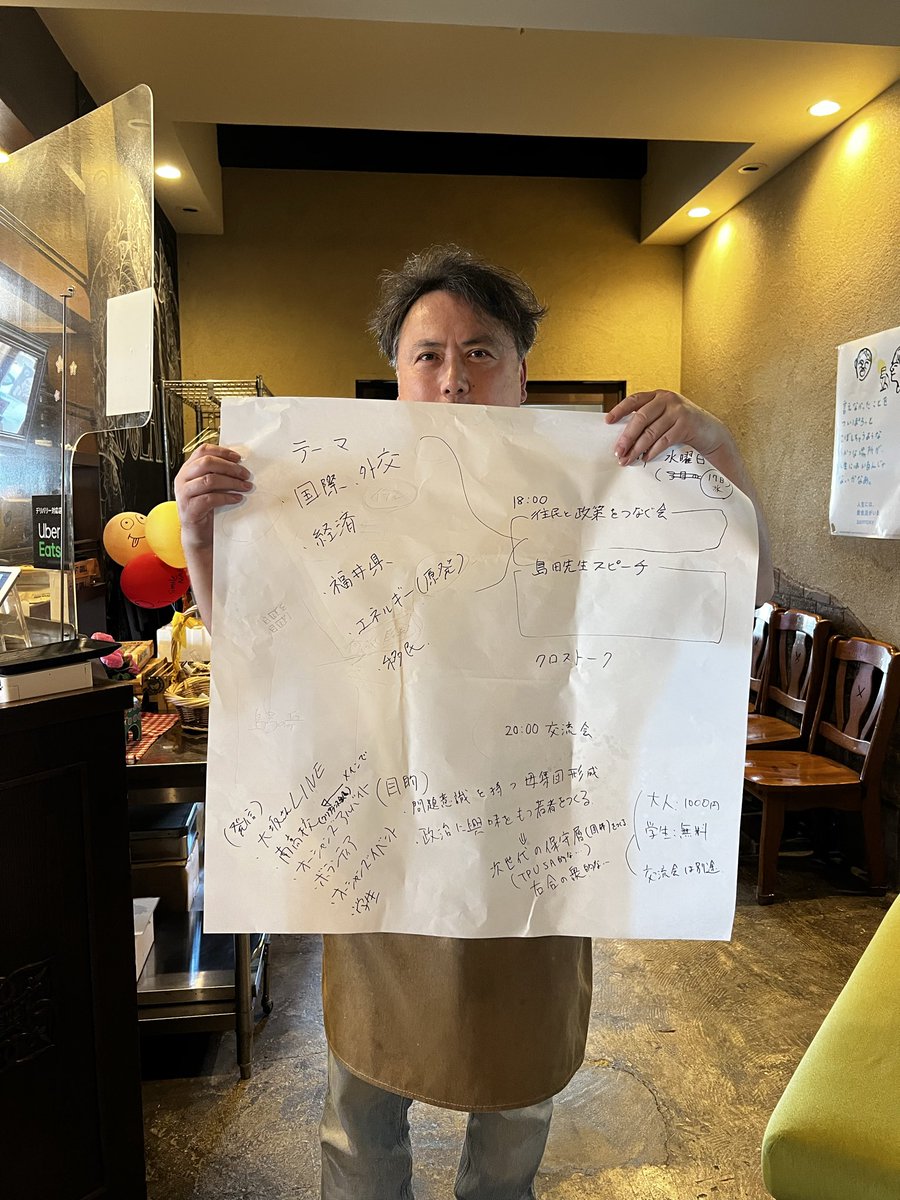 テーマ
・国際、外交
・経済
・福井県
・エネルギー(原発)
・移民
水曜日
17日
水
18:00
住民と政策をつなぐ会
島田先生スピーチ
クロストーク
20:00 交流会
(目的)
問題意識を持つ母集団形成
・政治に興味をもつ若者をつくる
⇓
次世代の保守層
(TPUSA的な…)
右合の衆的な…
大人:1000円
学生:無料
交流会は別途
(発信)
・大坂さんLINE
・南高校
メインで
・オーシャンズアルバイト
・ボランティア
・オーシャンズイベント
デリバリー対応店
Uber
Eats
言えなかったことを